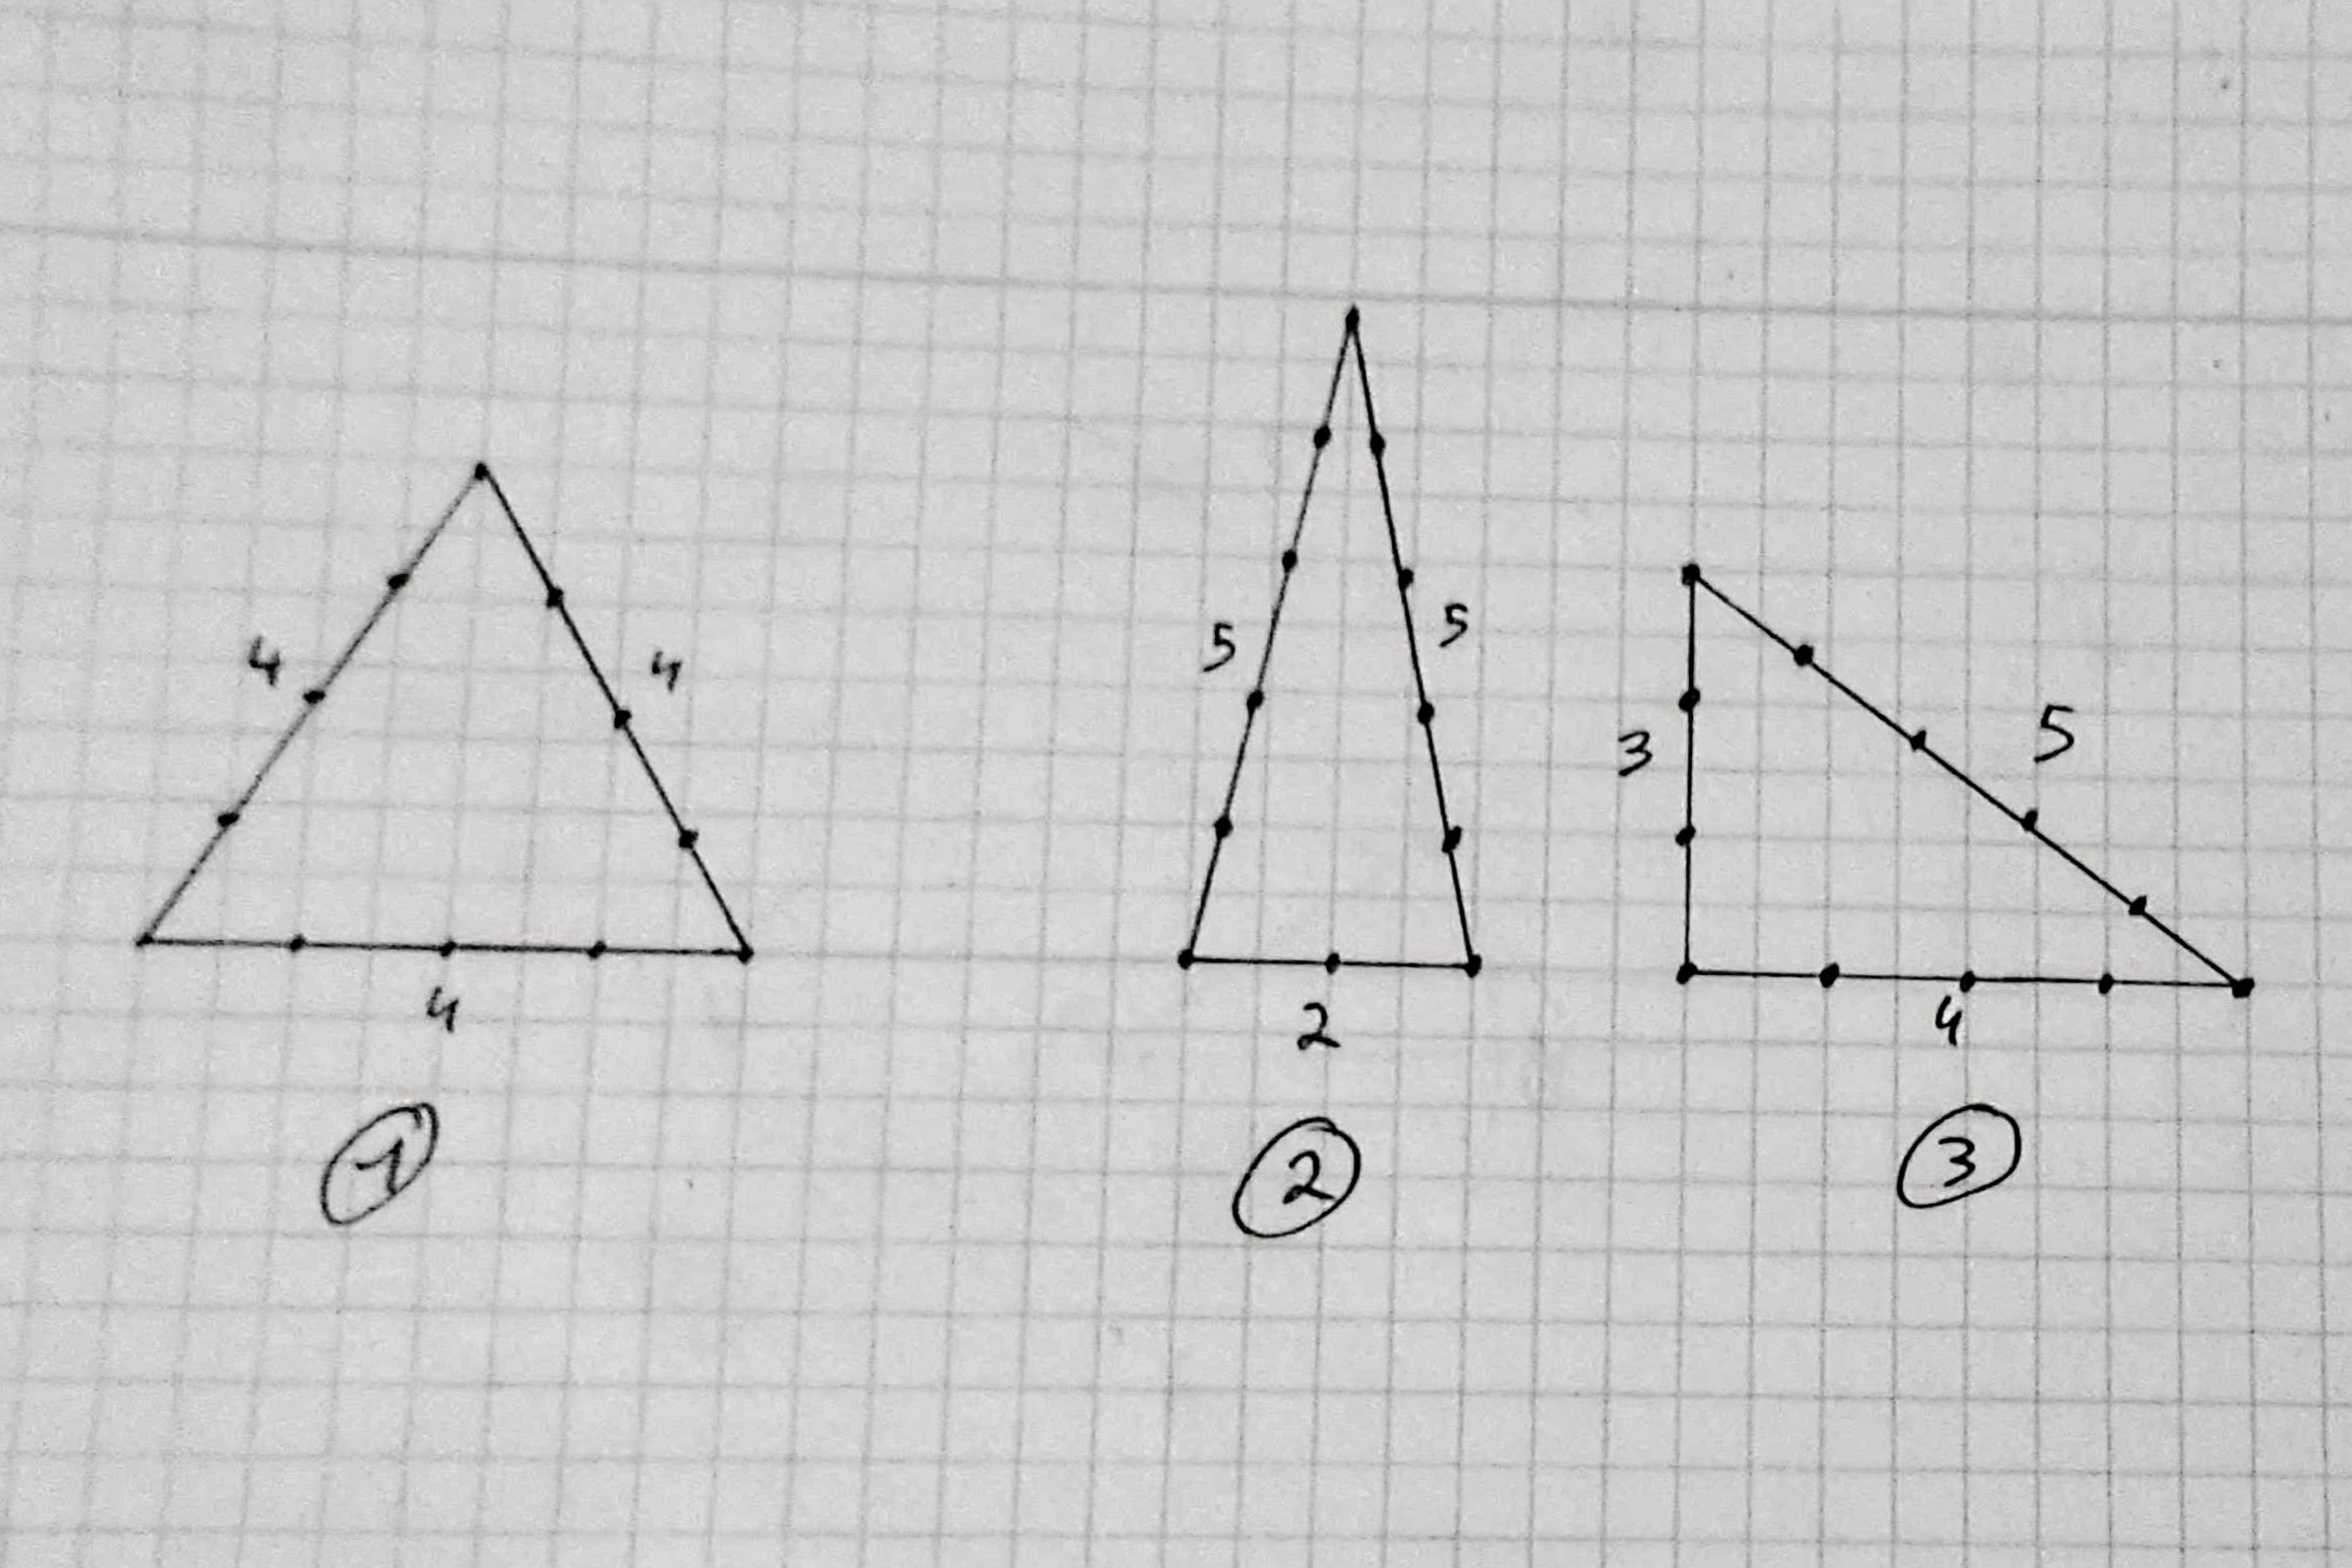 4 4
4
1
5 5
2
2
3 5
4
3